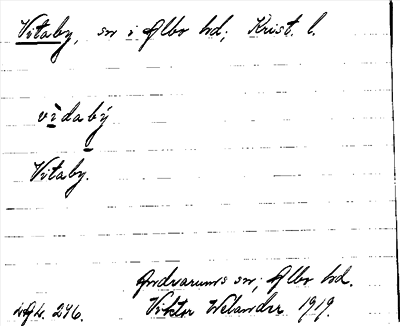 Vitaby, sn i Albo hd; Krist. l.
vìdabý
Vitaby.
Andrarums sn; Albo hd.
Viktor Welander 1919.
246.